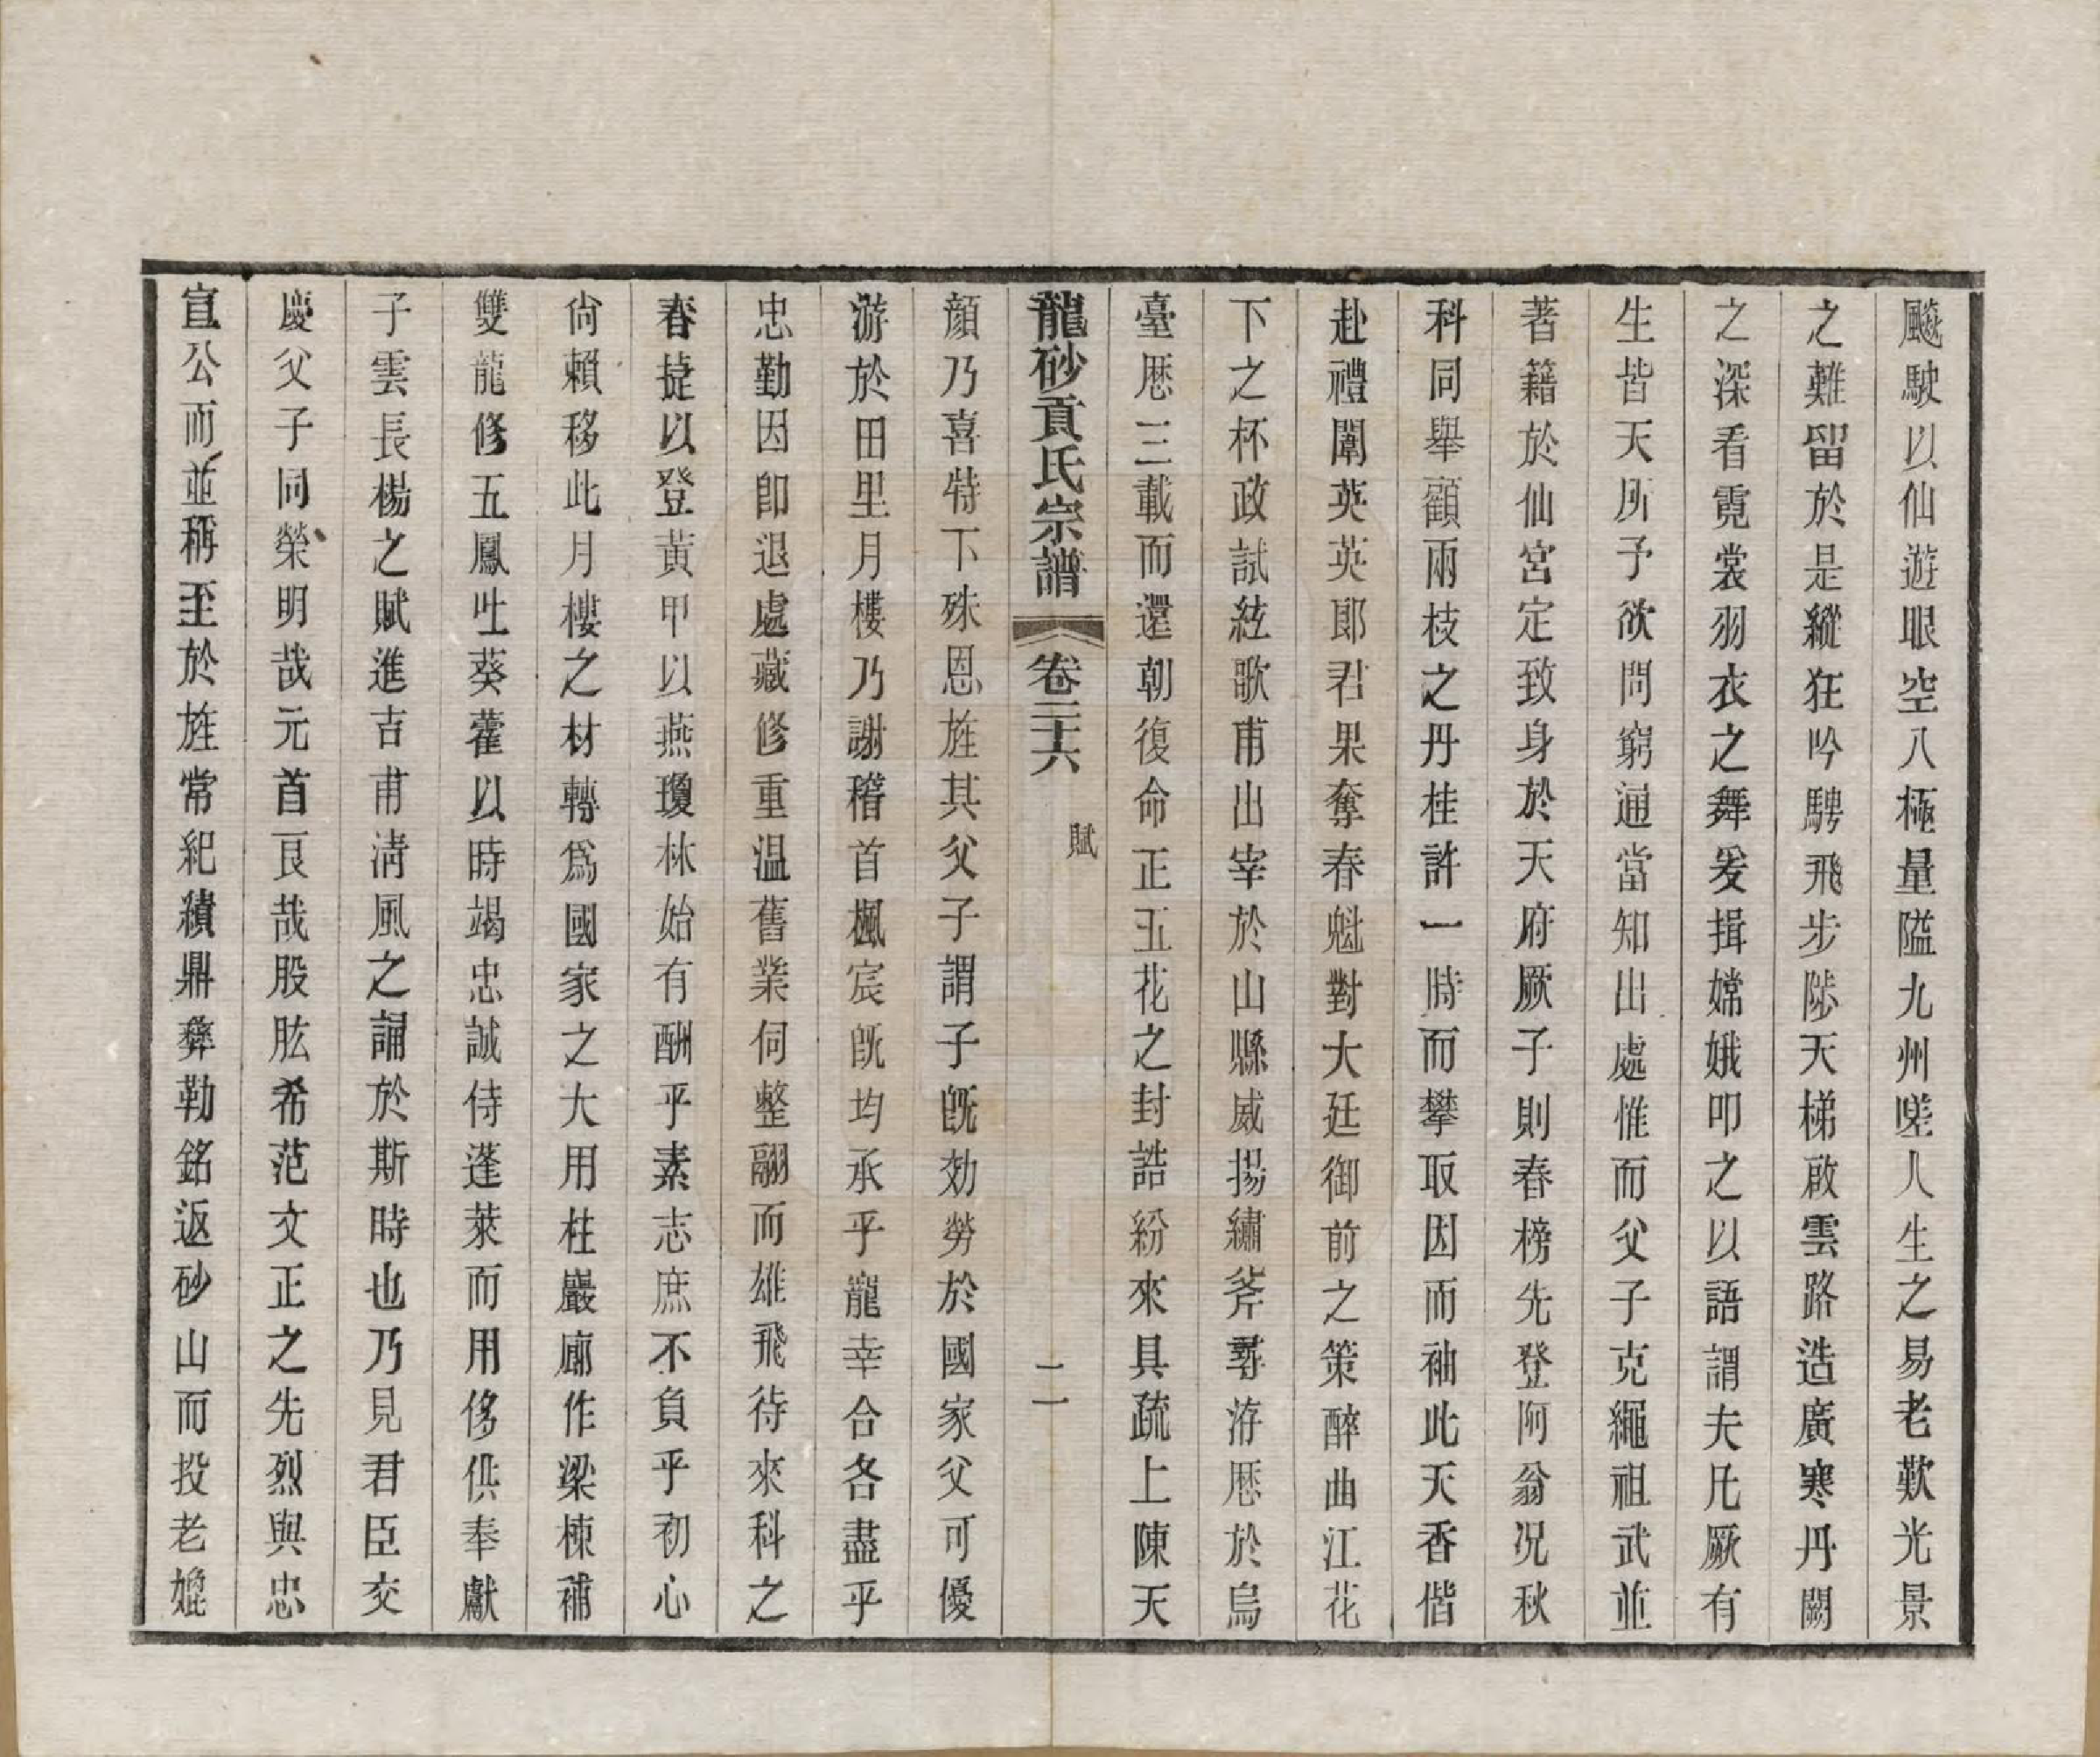 飈駛以仙遊眼空八極量隘九州嗟人生之易老歎光景
之難留於是縱狂吟騁飛步陟天梯啟雲路造廣寒丹闕
之深看霓裳羽衣之舞爰揖嫦娥叩之以語謂夫凡厥有
生皆天所予欲問窮通當知出處惟而父子克繩祖武並
著籍於仙宮定致身於天府厥子則春榜先登阿翁况秋
科同舉顧兩枝之丹桂許一時而攀取因而袖此天香偕
赴禮闈英英郎君果奪春魁對大廷御前之策醉曲江花
下之杯政試絃歌甫出宰於山縣威揚繡斧尋洊歷於烏
臺歷三載而還朝復命正五花之封誥紛來具疏上陳天
龍砂貢氏宗譜 卷二十六 賦 二
顏乃喜特下殊恩旌其父子謂子旣効勞於國家父可優
游於田里月樓乃謝稽首楓宸旣均承乎寵幸合各盡乎
忠勤因卽退處藏修重温舊業伺整翮而雄飛待來科之
春捷以登黃甲以燕瓊林始有酬乎素志庶不負乎初心
尙賴移此月樓之材轉爲國家之大用柱巖廊作梁棟補
雙龍修五鳳吐葵藿以時竭忠誠侍蓬萊而用侈供奉獻
子雲長楊之賦進吉甫淸風之誦於斯時也乃見君臣交
慶父子同榮明哉元首良哉股肱希范文正之先烈與忠
宣公而並稱至於旌常紀績鼎彝勒銘返砂山而投老媲